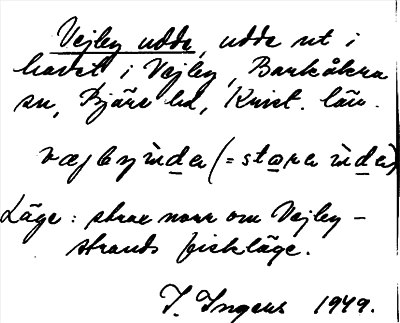 Vejby udde, udde ut i
havet i Vejby, Barkåkra
sn, Bjäre hd, Krist. län.
væjbyìnda (= stora ìnda)
Läge: strax norr om Vejby-
strands fiskläge.
I. Ingers 1949.